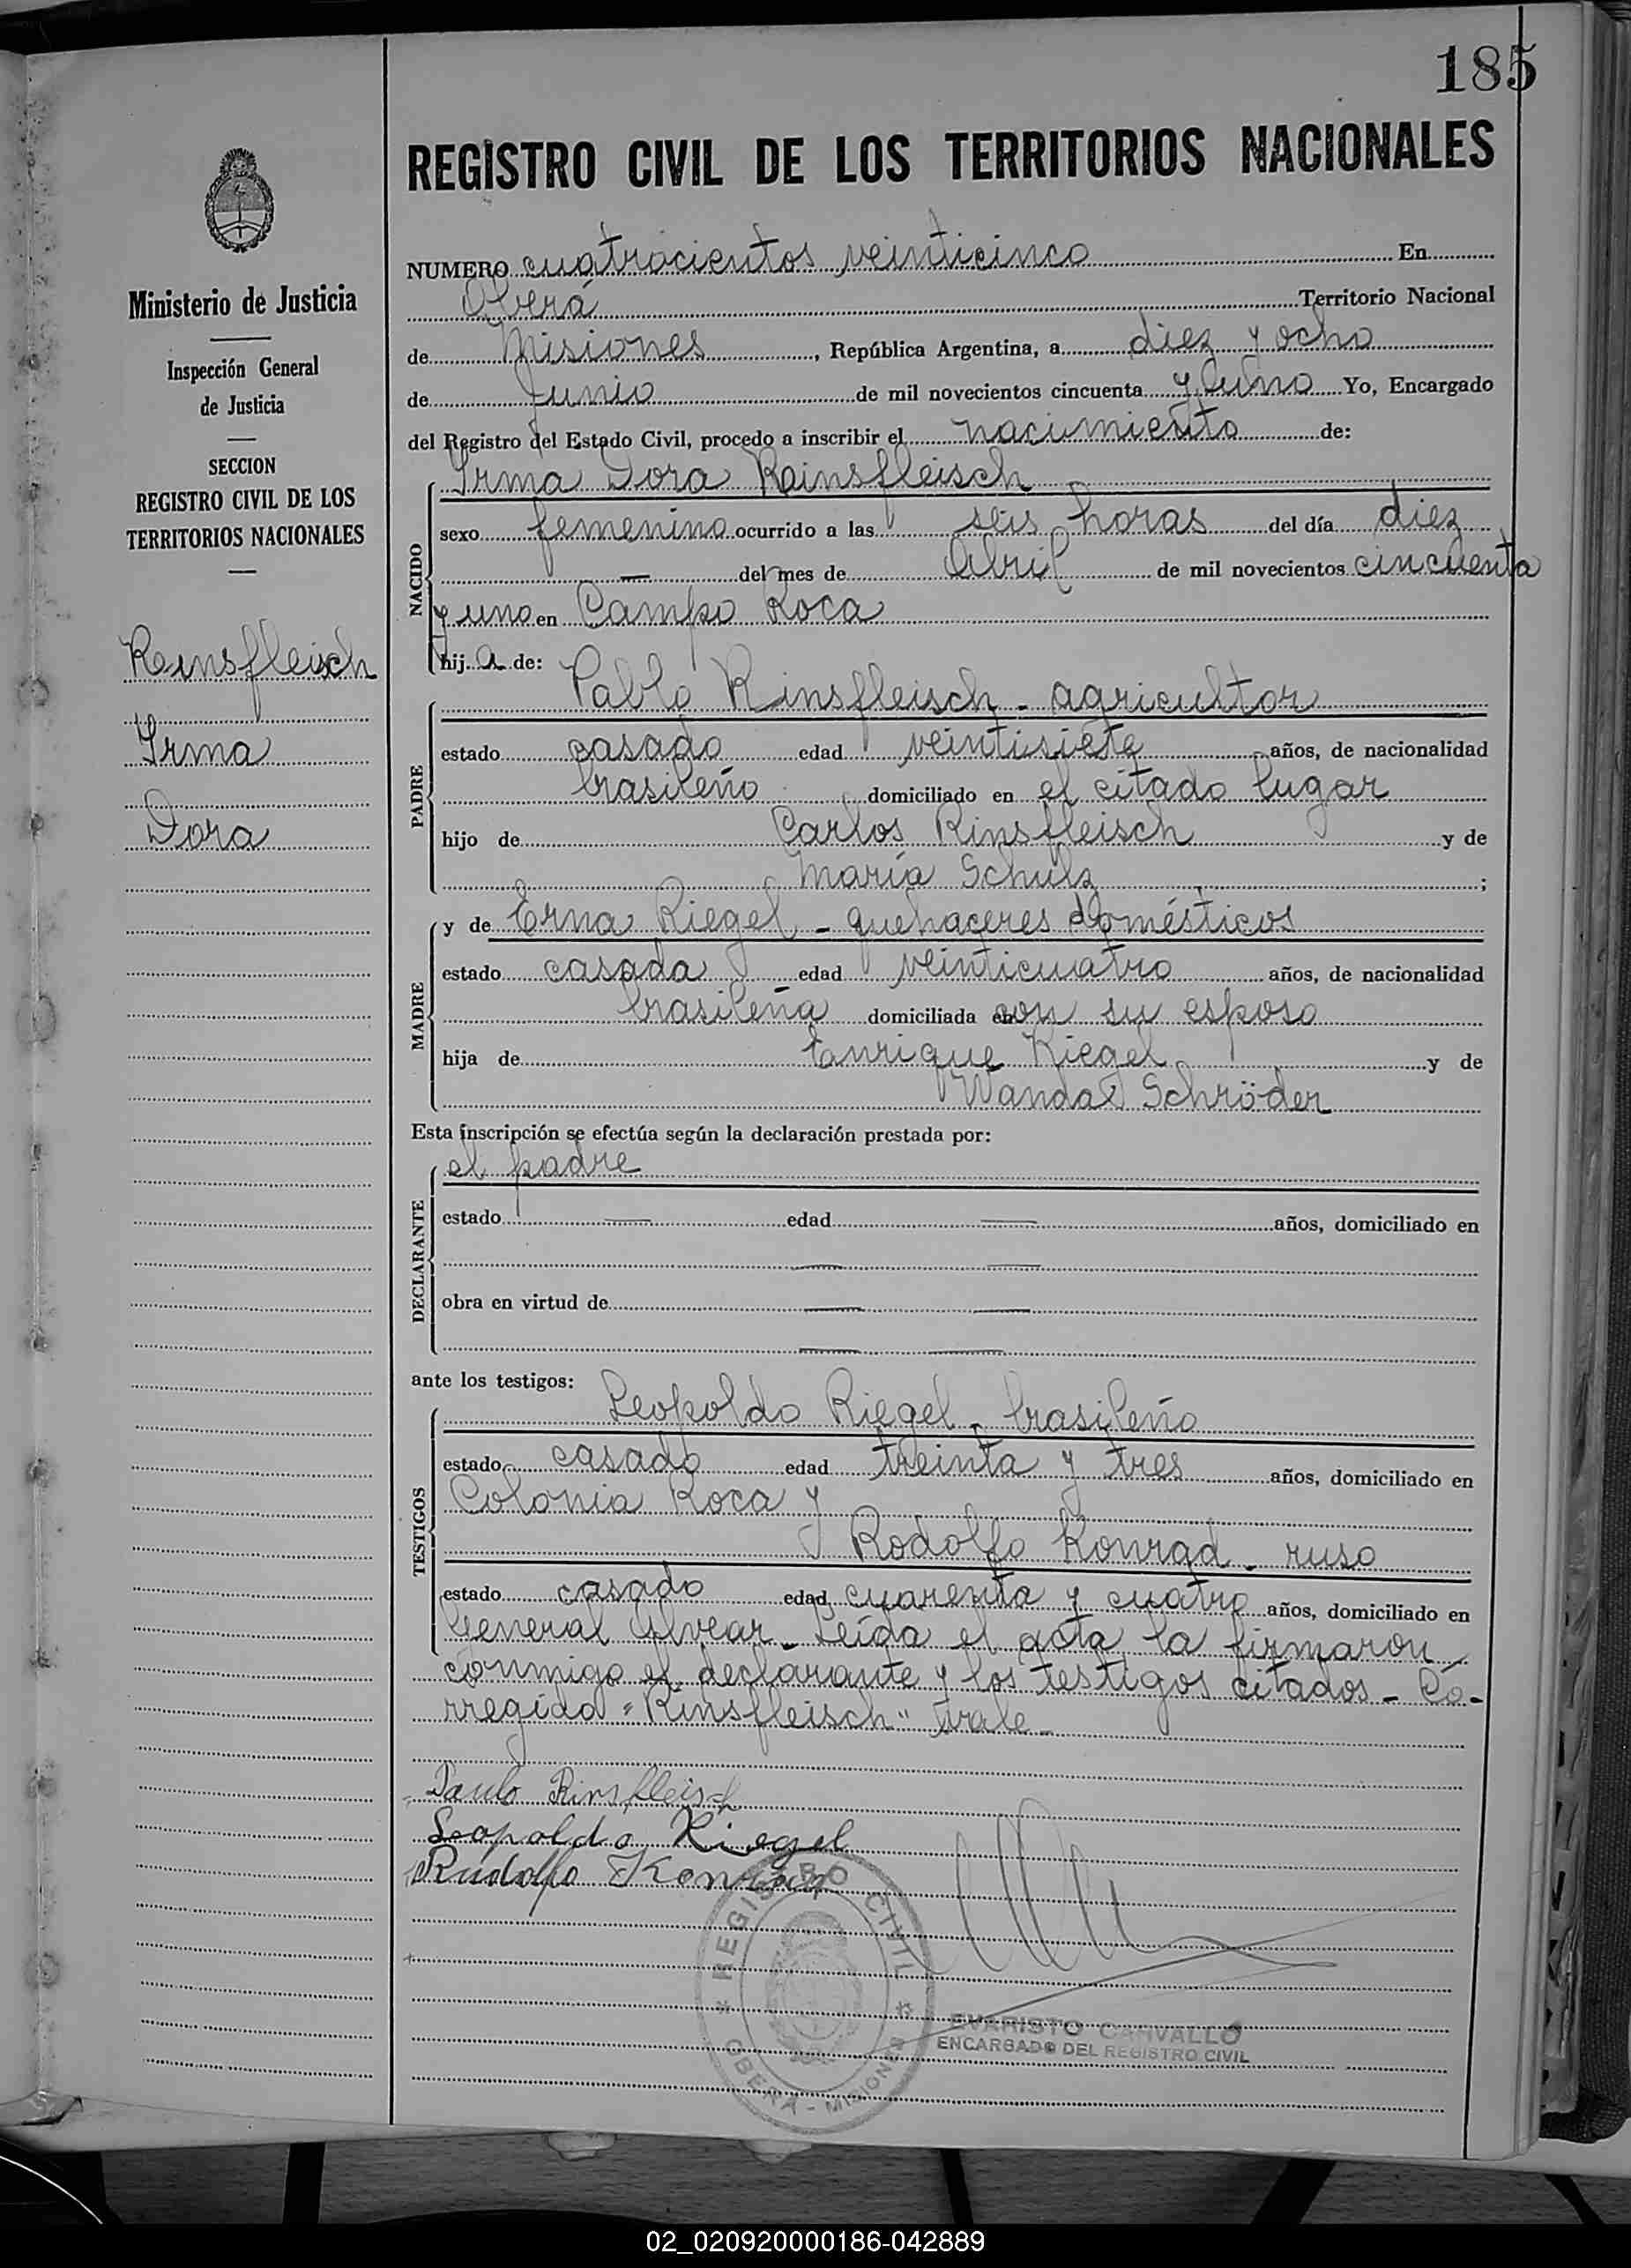 185
REGISTRO CIVIL DE LOS TERRITORIOS NACIONALES
Ministerio de Justicia
Inspección General
de Justicia
SECCION
REGISTRO CIVIL DE LOS
TERRITORIOS NACIONALES
Reinsfleisch
Irma
Dora
NUMERO cuatrocientos veinticinco En
Oberá Territorio Nacional
de Misiones, República Argentina, a diez y ocho
de Junio de mil novecientos cincuenta y uno Yo, Encargado
del Registro del Estado Civil, procedo a inscribir el nacimiento de:
NACIDO
Irma Dora Reinsfleisch
sexo femenino ocurrido a las seis horas del día diez
— del mes de Abril de mil novecientos cincuenta
y uno en Campo Roca
hij a de:
PADRE
Pablo Rinsfleisch - agricultor
estado casado edad veintisiete años, de nacionalidad
brasileño domiciliado en el citado lugar
hijo de Carlos Rinsfleisch y de
María Schulz ;
MADRE
y de Erna Riegel - quehaceres domésticos
estado casada edad veinticuatro años, de nacionalidad
brasileña domiciliada con su esposo
hija de Enrique Riegel y de
Wanda Schröder
Esta inscripción se efectúa según la declaración prestada por:
DECLARANTE
el padre
estado — edad — años, domiciliado en
— —
obra en virtud de — —
— —
ante los testigos:
TESTIGOS
Leopoldo Riegel - brasileño
estado casado edad treinta y tres años, domiciliado en
Colonia Roca y
Rodolfo Konrad - ruso
estado casado edad cuarenta y cuatro años, domiciliado en
General Alvear - Leída el acta la firmaron
conmigo el declarante y los testigos citados - Co-
rregido "Rinsfleisch" vale -
Paulo Rinsfleisch
Leopoldo Riegel
Rudolfo Konrad
REGISTRO CIVIL
OBERÁ - MISIONES
EVARISTO CARVALLO
ENCARGADO DEL REGISTRO CIVIL
02_020920000186-042889